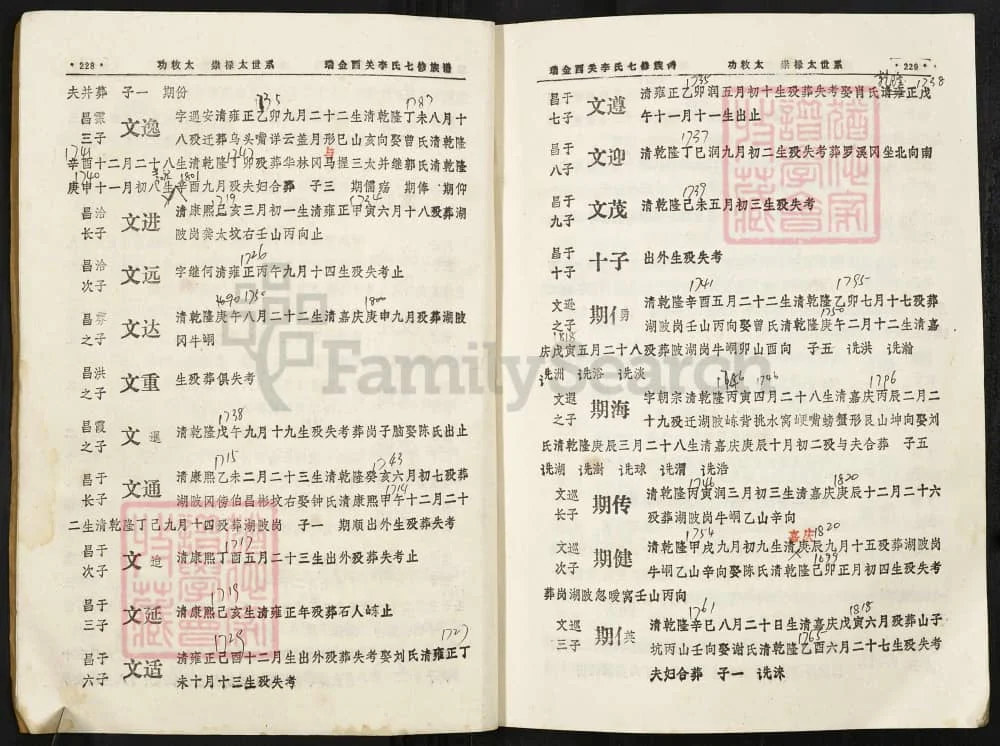 ·228· 功牧太 崇禄太世系 瑞金西关李氏七修族谱
夫并葬 子一 期份
昌霖三子 文逸 1735 1787 字遐安清雍正乙卯九月二十生清乾隆丁未八月十
八殁迁葬乌头嘴详云盖月形巳山亥向娶曾氏清乾隆
1741 辛酉十二月二十八生清乾隆丁卯殁葬华林冈马握三太并继郭氏清乾隆 1747 与
1740 庚申十一月初八生辛酉九月殁夫妇合葬 子三 期儒殇 期俸 期仰 1801
昌洽长子 文进 1719 1734 清康熙己亥三月初一生清雍正甲寅六月十八殁葬湖
陂岗龚太坟右壬山丙向止
昌洽次子 文远 1726 字继何清雍正丙午九月十四生殁失考止
昌霏之子 文达 1690 1750 1800 清乾隆庚午八月二十二生清嘉庆庚申九月殁葬湖陂
冈牛㘭
昌洪之子 文重 生殁葬俱失考
昌霞之子 文暹 1738 清乾隆戊午九月十九生殁失考葬岗子脑娶陈氏出止
昌于长子 文通 1715 1743 清康熙乙未二月二十三生清乾隆癸亥六月初七殁葬
湖陂冈傍伯昌彬坟右娶钟氏清康熙甲午十二月二十 1714
二生清乾隆丁己九月十四殁葬湖陂岗 子一 期顺出外生殁葬失考
昌于次子 文造 1717 清康熙丁酉五月二十三生出外殁葬失考止
昌于三子 文延 1719 清康熙己亥生清雍正年殁葬石人㟍止
昌于六子 文适 1729 1727 清雍正己酉十二月生出外殁葬失考娶刘氏清雍正丁
未十月十三生殁失考
瑞金西关李氏七修族谱 功牧太 崇禄太世系 ·229·
昌于七子 文遵 1735 乾隆 1738 清雍正乙卯润五月初十生殁葬失考娶肖氏清雍正戊
午十一月十一生出止
昌于八子 文迎 1737 清乾隆丁巳润九月初二生殁失考葬罗溪冈坐北向南
昌于九子 文茂 1739 清乾隆己未五月初三生殁失考
昌于十子 十子 出外生殁失考
文逊之子 期㑾 1741 1795 清乾隆辛酉五月二十二生清乾隆乙卯七月十七殁葬
湖陂岗壬山丙向娶曾氏清乾隆庚午二月十二生清嘉 1750
1818 庆戊寅五月二十八殁葬陂湖岗牛㘭卯山酉向 子五 诜洪 诜瀚
诜洲 诜浴 诜淡
文暹之子 期海 1746 1746 1796 字朝宗清乾隆丙寅四月二十八生清嘉庆丙辰二月二
十九殁迁湖陂崠背挑水窝哽嘴螃蟹形艮山坤向娶刘
氏清乾隆庚辰三月二十八生清嘉庆庚辰十月初二殁与夫合葬 子五
诜湖 诜澍 诜球 诜渭 诜浩
文巡长子 期传 1746 1820 清乾隆丙寅润三月初三生清嘉庆庚辰十二月二十六
殁葬湖陂岗牛㘭乙山辛向
文巡次子 期健 1754 嘉庆1820 清乾隆甲戌九月初九生清庚辰九月十五殁葬湖陂岗
牛㘭乙山辛向娶陈氏清乾隆己卯正月初四生殁失考 1699
葬岗湖陂忽嗳窝壬山丙向
文巡三子 期偀 1761 1818 清乾隆辛巳八月二十日生清嘉庆戊寅六月殁葬山子
坑丙山壬向娶谢氏清乾隆乙酉六月二十七生殁失考 1765
夫妇合葬 子一 诜洣
FamilySearch